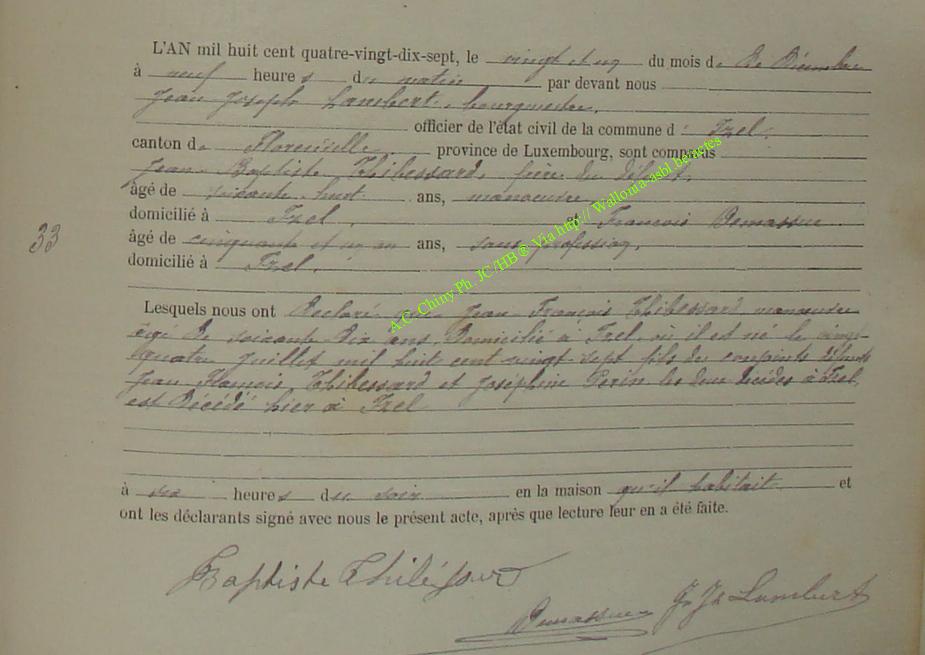 L'AN mil huit cent quatre-vingt-dix-sept, le vingt et un du mois de De Décembre
à neuf heures du matin par devant nous
Jean Joseph Lambert, bourgmestre,
officier de l'état civil de la commune d' Izel,
canton de Florenville, province de Luxembourg, sont comparus
Jean-Baptiste Thibessard, frère du défunt,
âgé de soixante huit ans, manoeuvre
domicilié à Izel, et François Demasseur
âgé de cinquante et un an ans, sans profession,
domicilié à Izel.
33
Lesquels nous ont Déclaré que Jean François Thibessard manoeuvre
âgé De soixante Dix ans, Domicilié à Izel, où il est né le vingt-
quatre Juillet mil huit cent vingt sept fils des conjoints défunts
Jean François Thibessard et Joséphine Perin les deux décédés à Izel
est Décédé hier à Izel
à six heures du soir en la maison qu'il habitait et
ont les déclarants signé avec nous le présent acte, après que lecture leur en a été faite.
Baptiste Thiléssard
J. Js Lambert
A.C. Chiny Ph. JC /HB ® Via http // Wallonia-asbl be/actes